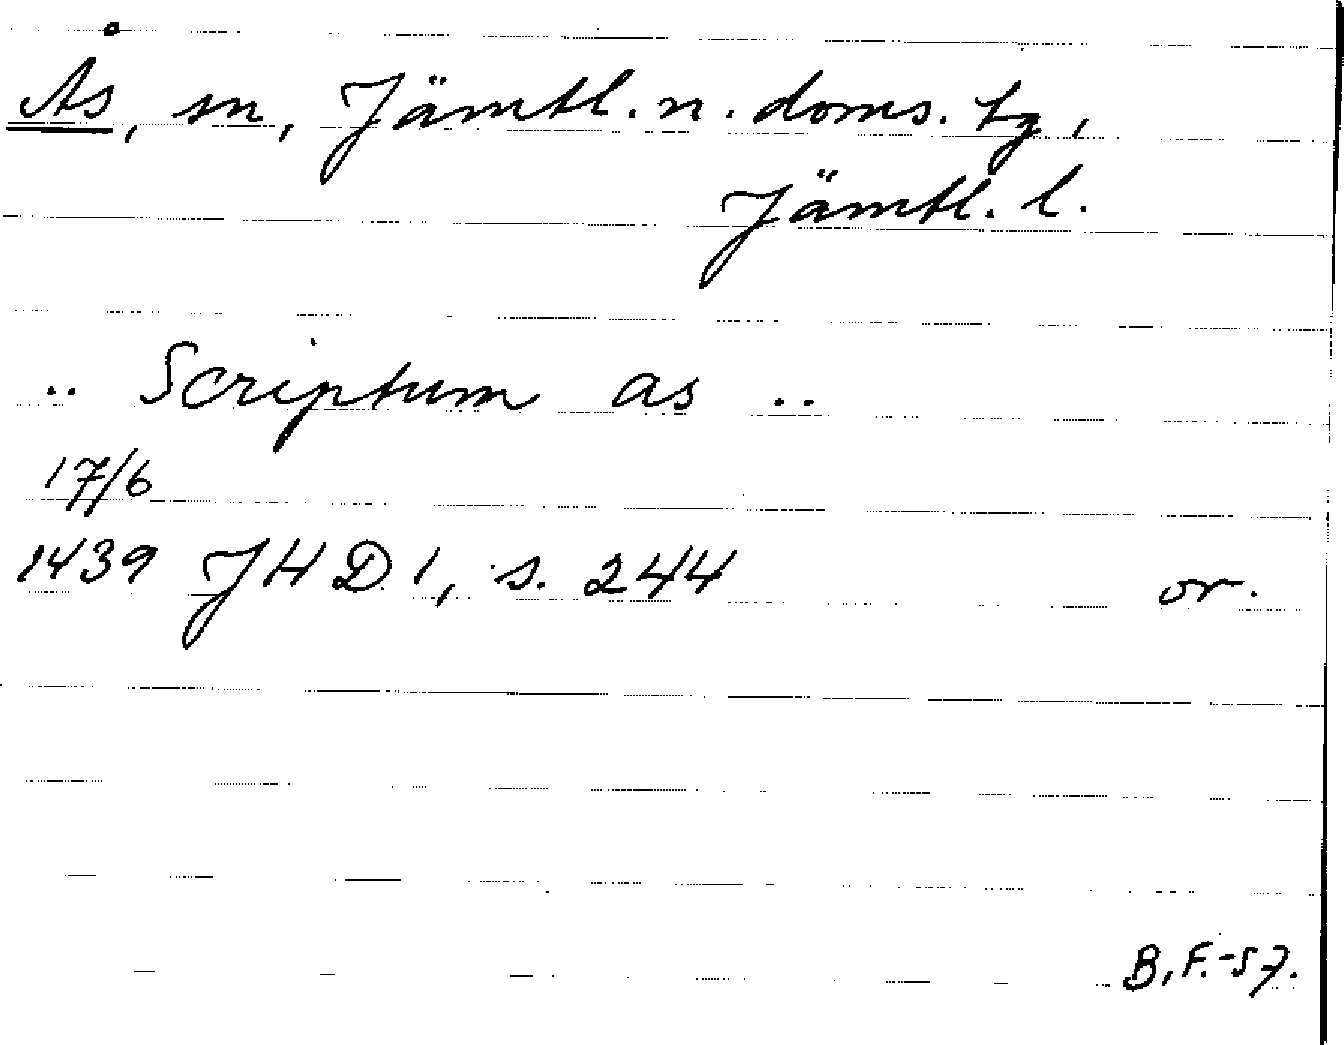 Ås, sn, Jämtl. n. doms. tg,
Jämtl. l.
.. Scriptum as ..
17/6
1439 JHD 1, s. 244 or.
B.F.-57.